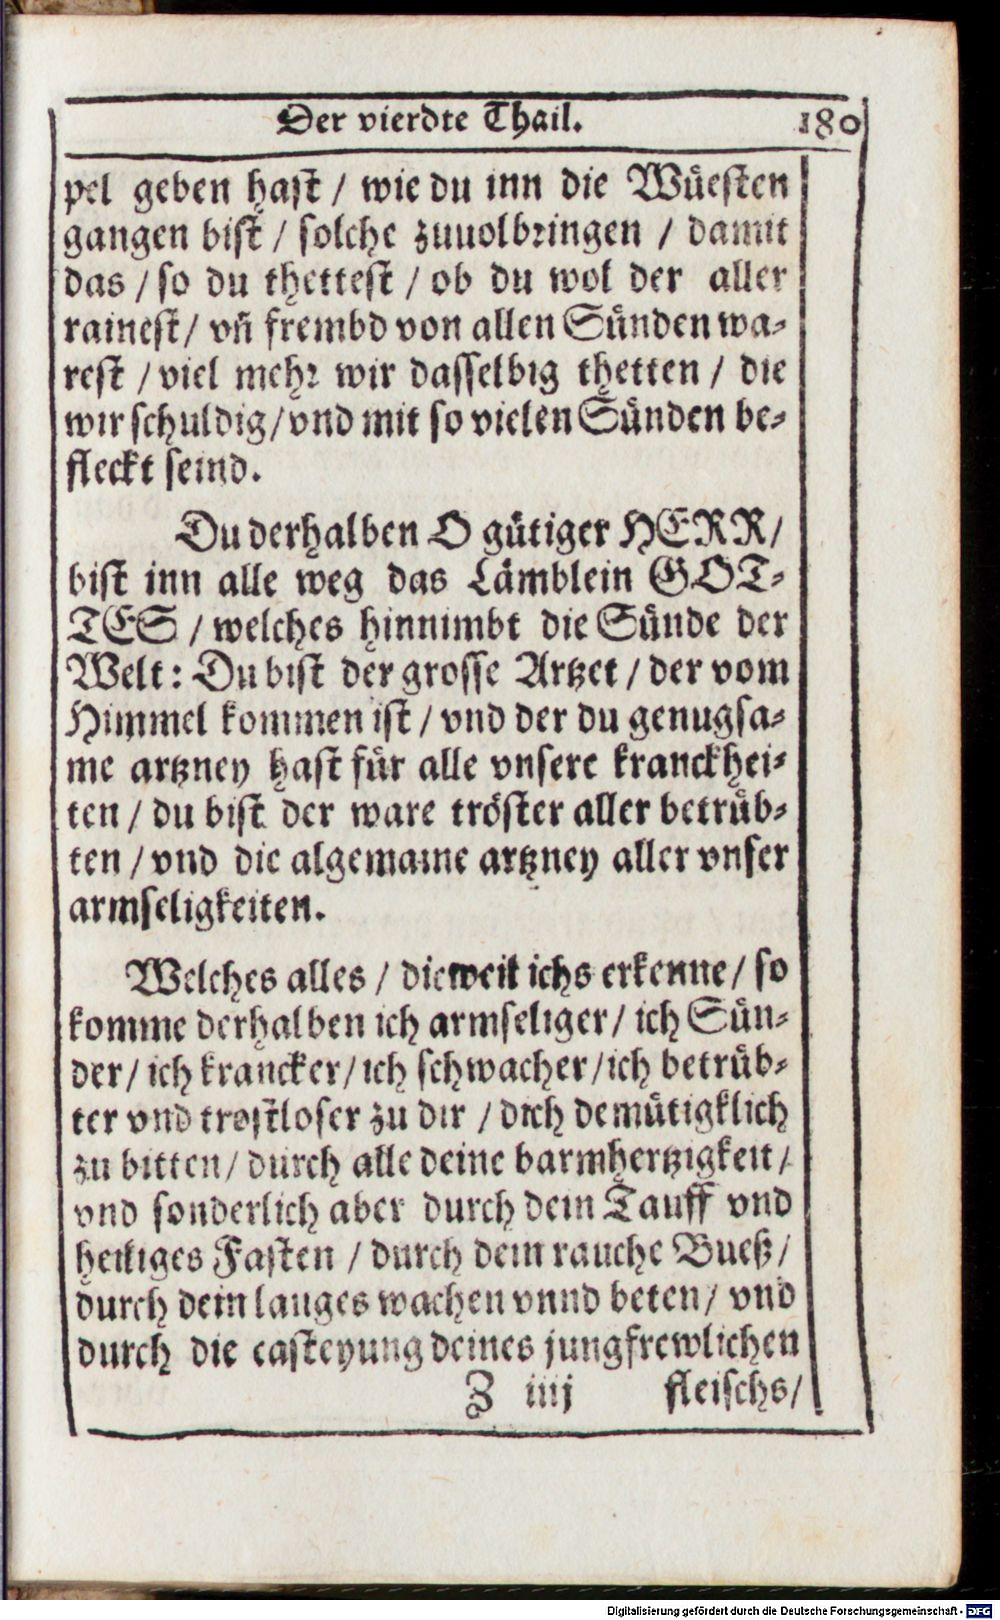 Der vierdte Thail. 180
pel geben hast / wie du inn die Wüesten
gangen bist / solche zuuolbringen / damit
das / so du thettest / ob du wol der aller
rainest / vñ frembd von allen Sünden wa-
rest / viel mehr wir dasselbig thetten / die
wir schuldig / vnd mit so vielen Sünden be-
fleckt seind.
Du derhalben O gütiger HERR /
bist inn alle weg das Lämblein GOT-
TES / welches hinnimbt die Sünde der
Welt: Du bist der grosse Artzet / der vom
Himmel kommen ist / vnd der du genugsa-
me artzney hast für alle vnsere kranckhei-
ten / du bist der ware tröster aller betrüb-
ten / vnd die algemaine artzney aller vnser
armseligkeiten.
Welches alles / dieweil ichs erkenne / so
komme derhalben ich armseliger / ich Sün-
der / ich krancker / ich schwacher / ich betrüb-
ter vnd trostloser zu dir / dich demütigklich
zu bitten / durch alle deine barmhertzigkeit /
vnd sonderlich aber durch dein Tauff vnd
heiliges Fasten / durch dein rauche Bueß /
durch dein langes wachen vnnd beten / vnd
durch die casteyung deines jungfrewlichen
Z iiij fleischs /
Digitalisierung gefördert durch die Deutsche Forschungsgemeinschaft - DFG